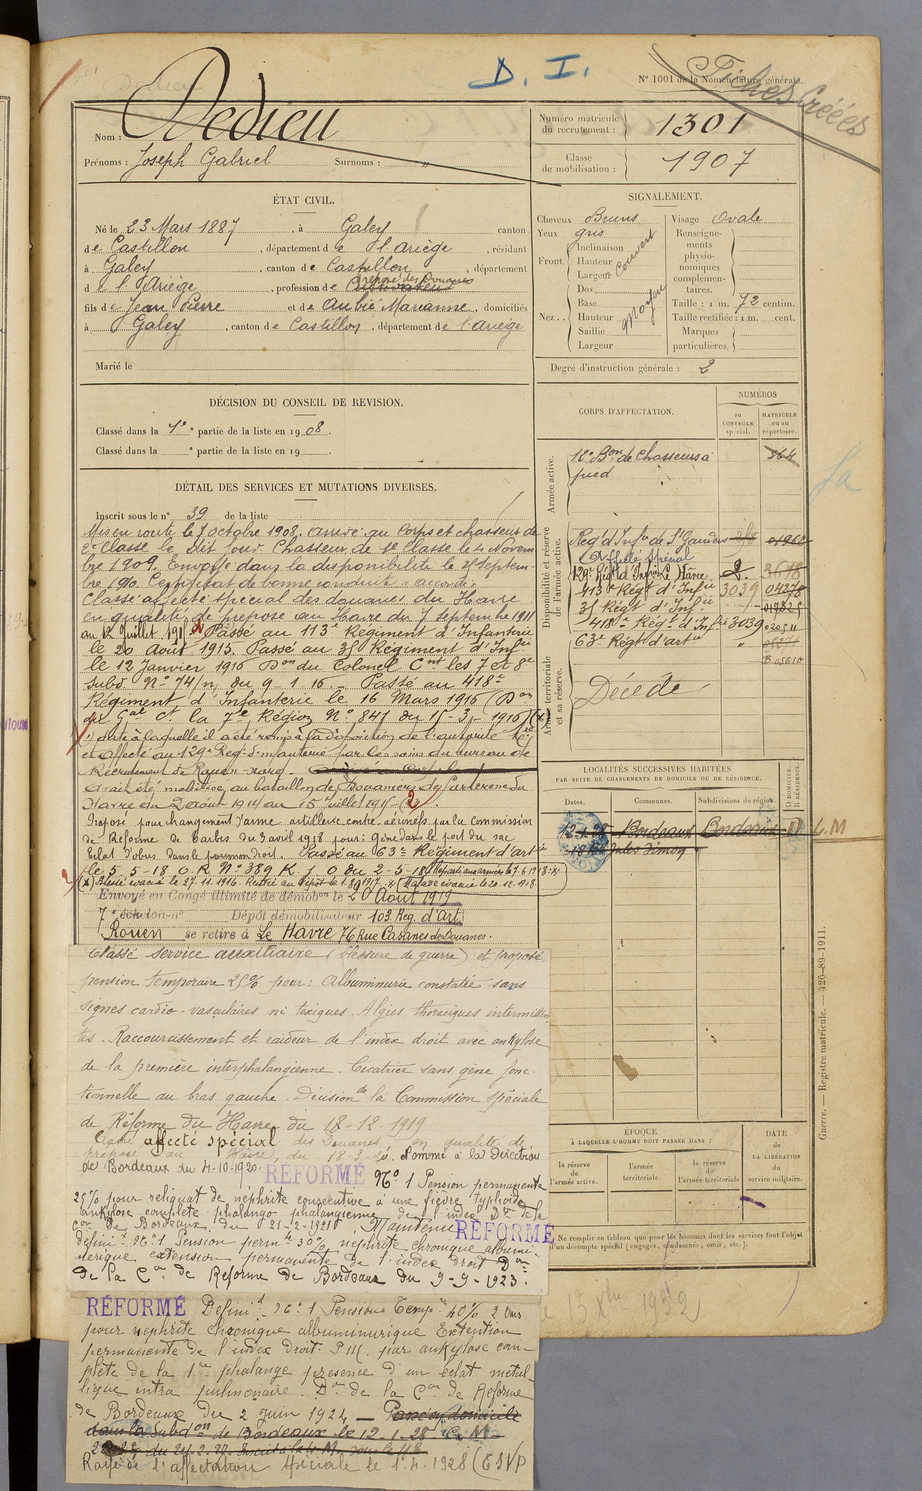 D. I.
N° 1001 de la Nomenclature générale.
Fiches Créées
Nom : Dedieu
Prénoms : Joseph Gabriel Surnoms : "
Numéro matricule du recrutement : 1301
Classe de mobilisation : 1907
ÉTAT CIVIL.
Né le 23 Mars 1887, à Galey canton
de Castillon, département de l'Ariège, résidant
à Galey, canton de Castillon, département
d e l'Ariège, profession de Cultivateur préposé des Douanes
fils de Jean Pierre et de Aubié Marianne, domiciliés
à Galey, canton de Castillon, département de l'Ariège
Marié le
SIGNALEMENT.
Cheveux Bruns
Yeux gris
Front Inclinaison
Hauteur
Largeur
Couvert
Nez Dos
Base
Hauteur
Saillie
Largeur
Moyen
Visage Ovale
Renseignements physionomiques complémentaires.
Taille : 1 m. 72 centim.
Taille rectifiée : 1 m. cent.
Marques particulières.
Degré d'instruction générale : 2
DÉCISION DU CONSEIL DE REVISION.
Classé dans la 1e partie de la liste en 1908.
Classé dans la e partie de la liste en 19
DÉTAIL DES SERVICES ET MUTATIONS DIVERSES.
Inscrit sous le n° 39 de la liste
Mis en route le 7 octobre 1908. Arrivé au Corps et chasseur de
2e Classe le dit jour. Chasseur de 1e Classe le 4 Novem
bre 1909. Envoyé dans la disponibilité le 25 Septem
bre 1910. Certificat de bonne conduite accordé.
Classé affecté spécial des douanes du Havre
en qualité de préposé au Havre du 7 septembre 1911
au 12 Juillet 1915 Passé au 113e Régiment d'Infanterie
le 20 Août 1915. Passé au 35 Régiment d'Infie
le 12 Janvier 1916 Don du Colonel Cmt les 7 et 8e
Subd. N° 74/n, du 9-1-16 — Passé au 418e
Régiment d'Infanterie le 16 Mars 1916 (Don
du Gal Ct la 7e Région N° 841 du 15-3-1916) (x)
(1) date à laquelle il a été remis à la disposition de l'autorité Mre
et affecté au 129e Reg. d'infanterie par les soins du bureau de
Recrutement de Rouen-nord.
Avait été mobilisé au bataillon de Douaniers de forteresse du
Havre du 2 août 1914 au 15 juillet 1915 (2).
Proposé pour changement d'arme artillerie contre aériens par la Commission
de Réforme de Tarbes du 3 avril 1918 pour: gêne dans le port du sac
Eclat d'obus dans le poumon droit. Passé au 63e Régiment d'artie
le 5-5-18 O.R N° 389 K 1 O du 2-5-18
(x) Blessé évacué le 27.11.1916. Rentré au Dépôt le
Envoyé en Congé illimité de démobon le 20 Août 1919
7e échelon-n° Dépôt démobilisateur 103 Rég. d'Art.
Rouen se retire à Le Havre 76 Rue Casanes de Douanes.
Classé service auxiliaire (blessure de guerre) et proposé
pension temporaire 25% pour: Albuminurie constatée sans
signes cardio-vasculaires ni toxiques. Algies thoraciques intermitten
tes. Raccourcissement et raideur de l'index droit avec ankylose
de la première interphalangienne. Cicatrice sans gêne fonc
tionnelle au bras gauche. Décision de la Commission spéciale
de Réforme du Havre du 18-12-1919
Classé affecté spécial des Douanes en qualité de
préposé au Havre, du 18-2-20. Nommé à la direction
de Bordeaux du 4-10-1920.
RÉFORMÉ N° 1 Pension permanente
25% pour reliquat de néphrite consécutive à une fièvre typhoïde
ankylose complète phalango phalangienne de l'index Dr de la
Con de Bordeaux du 21-2-1921. Maintenu RÉFORMÉ
définit N° 1 Pension permte 30% néphrite chronique albumi-
nurique extension permanente de l'index droit Don
de la Con de Réforme de Bordeaux du 9-9-1923.
RÉFORMÉ Définit N° 1 Pension Tempre 40% 2 ans
pour néphrite chronique albuminurique Extention
permanente de l'index droit. P.M. par ankylose com-
plète de la 1ère phalange présence d'un éclat métal-
lique intra pulmonaire. Don de la Con de Réforme
de Bordeaux du 2 Juin 1924 — Passé au domicile
dans la Subdon de Bordeaux le 12-1-28
Rayé de l'affectation Spéciale le 1-4-1928 (ESVP
CORPS D'AFFECTATION.
NUMÉROS
au CONTRÔLE spécial.
MATRICULE ou au répertoire.
Armée active.
16e Bon de Chasseurs à pied 364
Disponibilité et réserve de l'armée active.
Rég. d'Infie de St Gaudens
(Affecté Spécial
129e Régt d'Infanterie Havre 2.
113 Régt d'Infie 3039
35 Régt d'Infie
418e Régt d'Infie 3039
63e Régt d'artie "
B 05610
Armée territoriale et sa réserve.
Décédé
LOCALITÉS SUCCESSIVES HABITÉES
PAR SUITE DE CHANGEMENTS DE DOMICILE OU DE RÉSIDENCE.
Dates. Communes. Subdivisions de région. D. DOMICILE. R. RÉSIDENCE.
12-1-28 Bordeaux Bordeaux D L.M
18 Jules Simon
ÉPOQUE
À LAQUELLE L'HOMME DOIT PASSER DANS
la réserve de l'armée active.
l'armée territoriale.
la réserve de l'armée territoriale
DATE de LA LIBÉRATION du service militaire.
Ne remplir ce tableau que pour les hommes dont les services font l'objet d'un décompte spécial (engagés, condamnés, omis, etc.).
Guerre. — Registre matricule. — 426-89-1911.